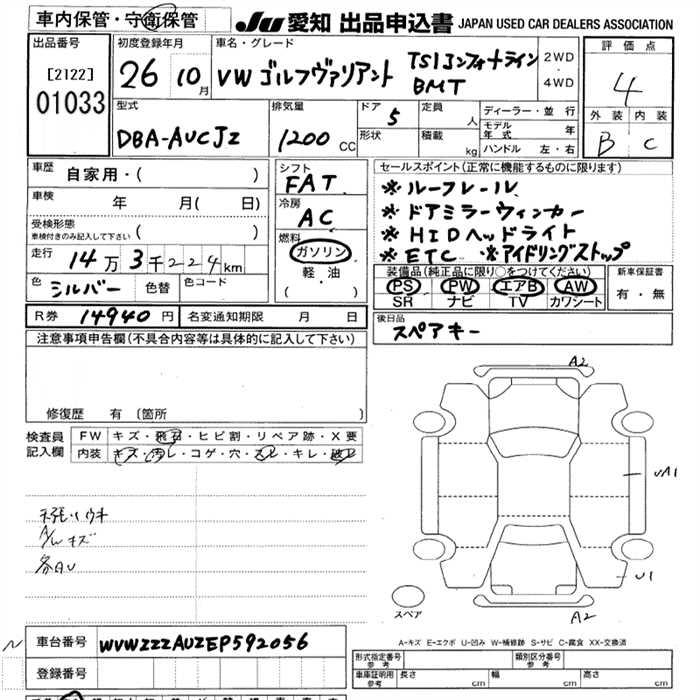 車内保管・守衛保管
JU 愛知 出品申込書 JAPAN USED CAR DEALERS ASSOCIATION
出品番号
[2122]
01033
初度登録年月
26 10月
車名・グレード
VW ゴルフヴァリアント TSIコンフォートライン
BMT
2WD
・
4WD
評価点
4
外装 内装
B C
型式
DBA-AUCJZ
排気量
1200 CC
ドア 5
形状
定員 人
積載 kg
ディーラー・並行
モデル年式 年
ハンドル 左・右
車歴 自家用・( )
車検 年 月( 日)
受検形態
車検付きのみ記入して下さい ( )
走行 14万3千224km
色 シルバー 色替 色コード
シフト
FAT
冷房
AC
燃料
ガソリン
軽・油
( )
セールスポイント(正常に機能するものに限ります)
※ルーフレール
※ドアミラーウィンカー
※HIDヘッドライト
※ETC ※アイドリングストップ
装備品(純正品に限り○をつけてください)
PS PW エアB AW
SR ナビ TV カワシート
新車保証書
有・無
R券 14940円 名変通知期限 月 日
後日品
スペアキー
注意事項申告欄(不具合内容等は具体的に記入して下さい)
修復歴 有 〔箇所 〕
検査員
記入欄
FW キズ・飛石・ヒビ割・リペア跡・X要
内装 キズ・汚レ・コゲ・穴・スレ・キレ・破レ
天張りウキ
A/Wキズ
各AU
A2
UA1
U1
スペア
A2
A-キズ E-エクボ U-凹み W-補修跡 S-サビ C-腐食 XX-交換済
車台番号 WVWZZZAUZEP592056
登録番号
形式指定番号
参考
類別区分番号
参考
車庫証明用
参考
長さ cm 幅 cm 高さ cm